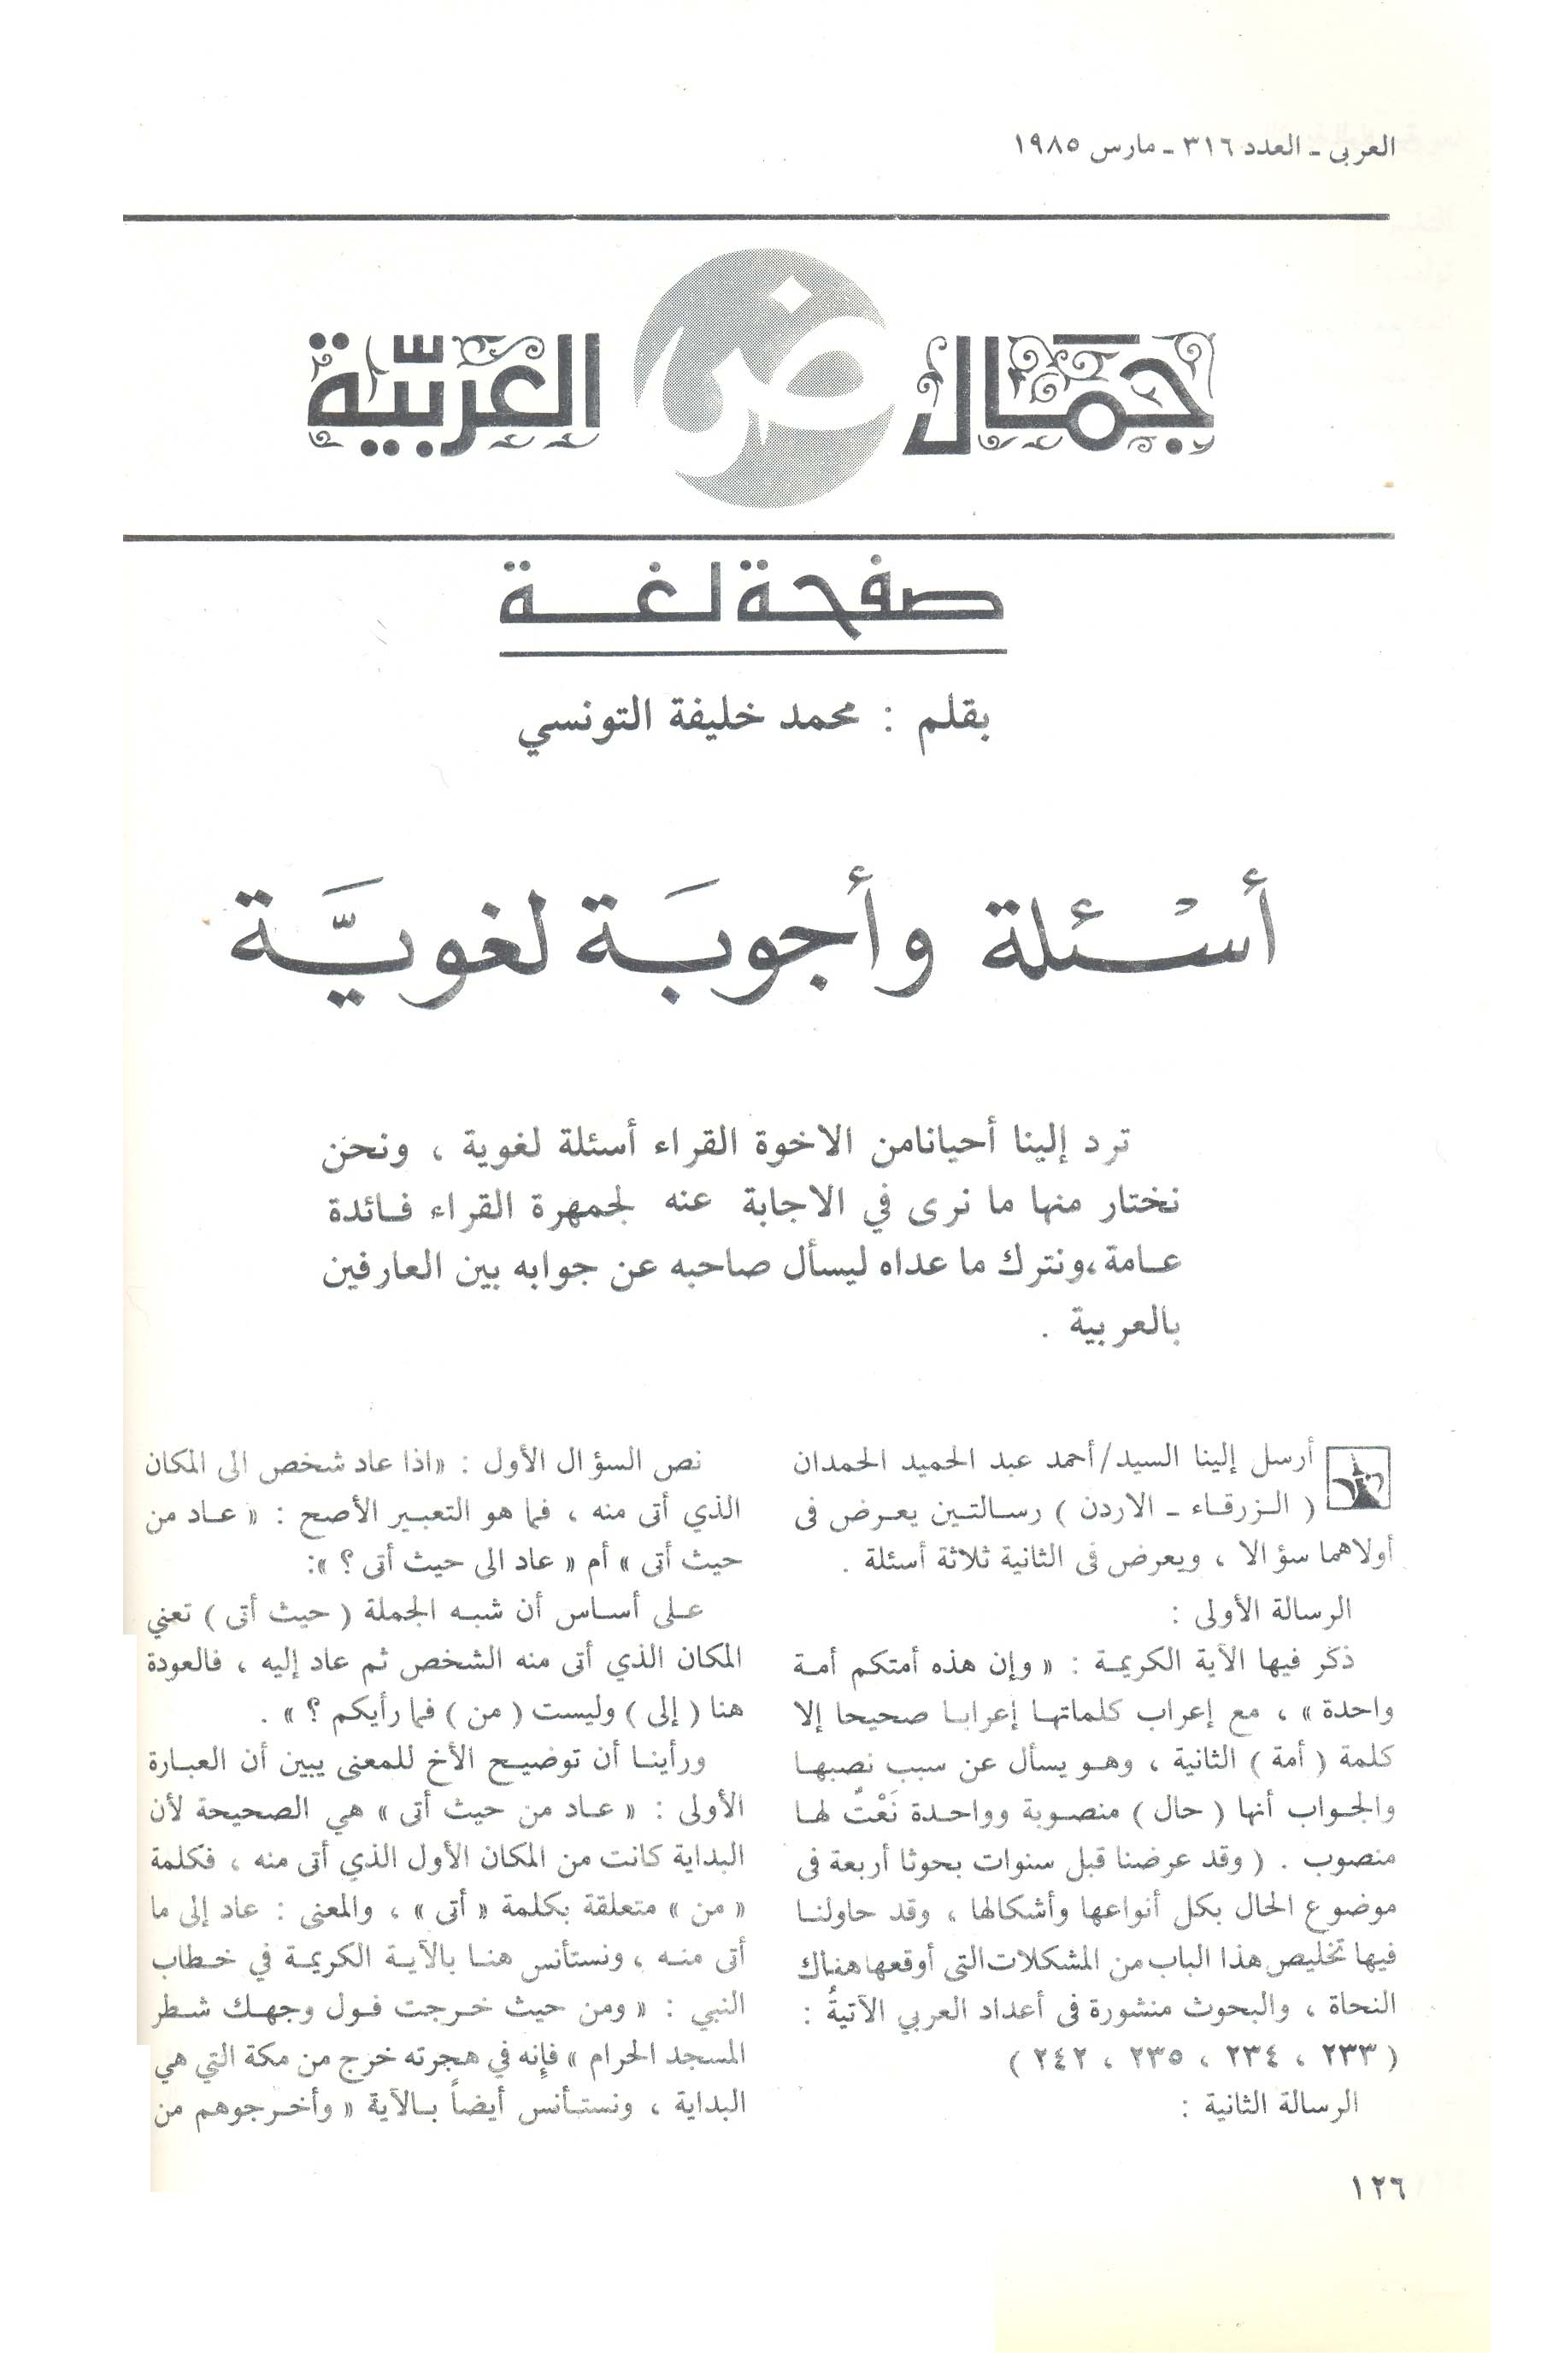 العربى ـ العدد ٣١٦ ـ مارس ١٩٨٥
جمال ض العربية
صفحة لغة
بقلم : محمد خليفة التونسي
أسئلة وأجوبة لغوية
ترد إلينا أحيانامن الاخوة القراء أسئلة لغوية ، ونحن
نختار منها ما نرى في الاجابة عنه لجمهرة القراء فائدة
عامة،ونترك ما عداه ليسأل صاحبه عن جوابه بين العارفين
بالعربية .
أرسل إلينا السيد/أحمد عبد الحميد الحمدان
( الزرقاء ـ الاردن ) رسالتين يعرض فى
أولاهما سؤالا ، ويعرض فى الثانية ثلاثة أسئلة .
الرسالة الأولى :
ذكر فيها الآية الكريمة : « وإن هذه أمتكم أمة
واحدة » ، مع إعراب كلماتها إعرابا صحيحا إلا
كلمة ( أمة ) الثانية ، وهو يسأل عن سبب نصبها
والجواب أنها ( حال ) منصوبة وواحدة نَعْتٌ لها
منصوب . ( وقد عرضنا قبل سنوات بحوثا أربعة فى
موضوع الحال بكل أنواعها وأشكالها ، وقد حاولنا
فيها تخليص هذا الباب من المشكلات التى أوقعها هناك
النحاة ، والبحوث منشورة فى أعداد العربي الآتيةُ :
( ٢٣٣ ، ٢٣٤ ، ٢٣٥ ، ٢٤٢ )
الرسالة الثانية :
نص السؤال الأول : «اذا عاد شخص الى المكان
الذي أتى منه ، فما هو التعبير الأصح : « عاد من
حيث أتى » أم « عاد الى حيث أتى ؟ »:
على أساس أن شبه الجملة ( حيث أتى ) تعني
المكان الذي أتى منه الشخص ثم عاد إليه ، فالعودة
هنا ( إلى ) وليست ( من ) فما رأيكم ؟ » .
ورأينا أن توضيح الأخ للمعنى يبين أن العبارة
الأولى : « عاد من حيث أتى » هي الصحيحة لأن
البداية كانت من المكان الأول الذي أتى منه ، فكلمة
« من » متعلقة بكلمة « أتى » ، والمعنى : عاد إلى ما
أتى منه ، ونستأنس هنا بالآية الكريمة في خطاب
النبي : « ومن حيث خرجت فول وجهك شطر
المسجد الحرام » فإنه في هجرته خرج من مكة التي هي
البداية ، ونستأنس أيضاً بالآية « وأخرجوهم من
١٢٦